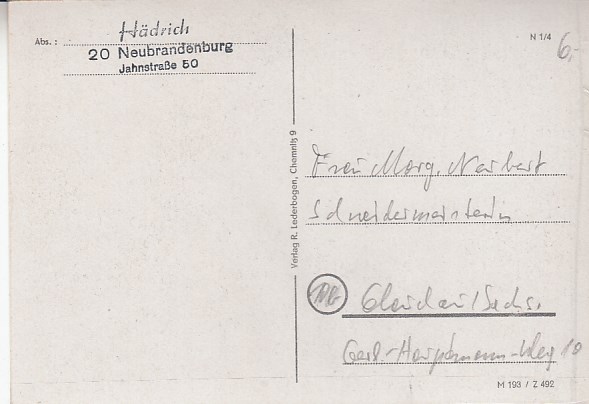 Abs.: Hädrich
20 Neubrandenburg
Jahnstraße 50
N 1/4
6,-
Verlag R. Lederbogen, Chemnitz 9
Frau Marg. Neubert
Schneidermeisterin
Glauchau/Sachs.
Gerh-Hauptmann-Weg 10
M 193 / Z 492